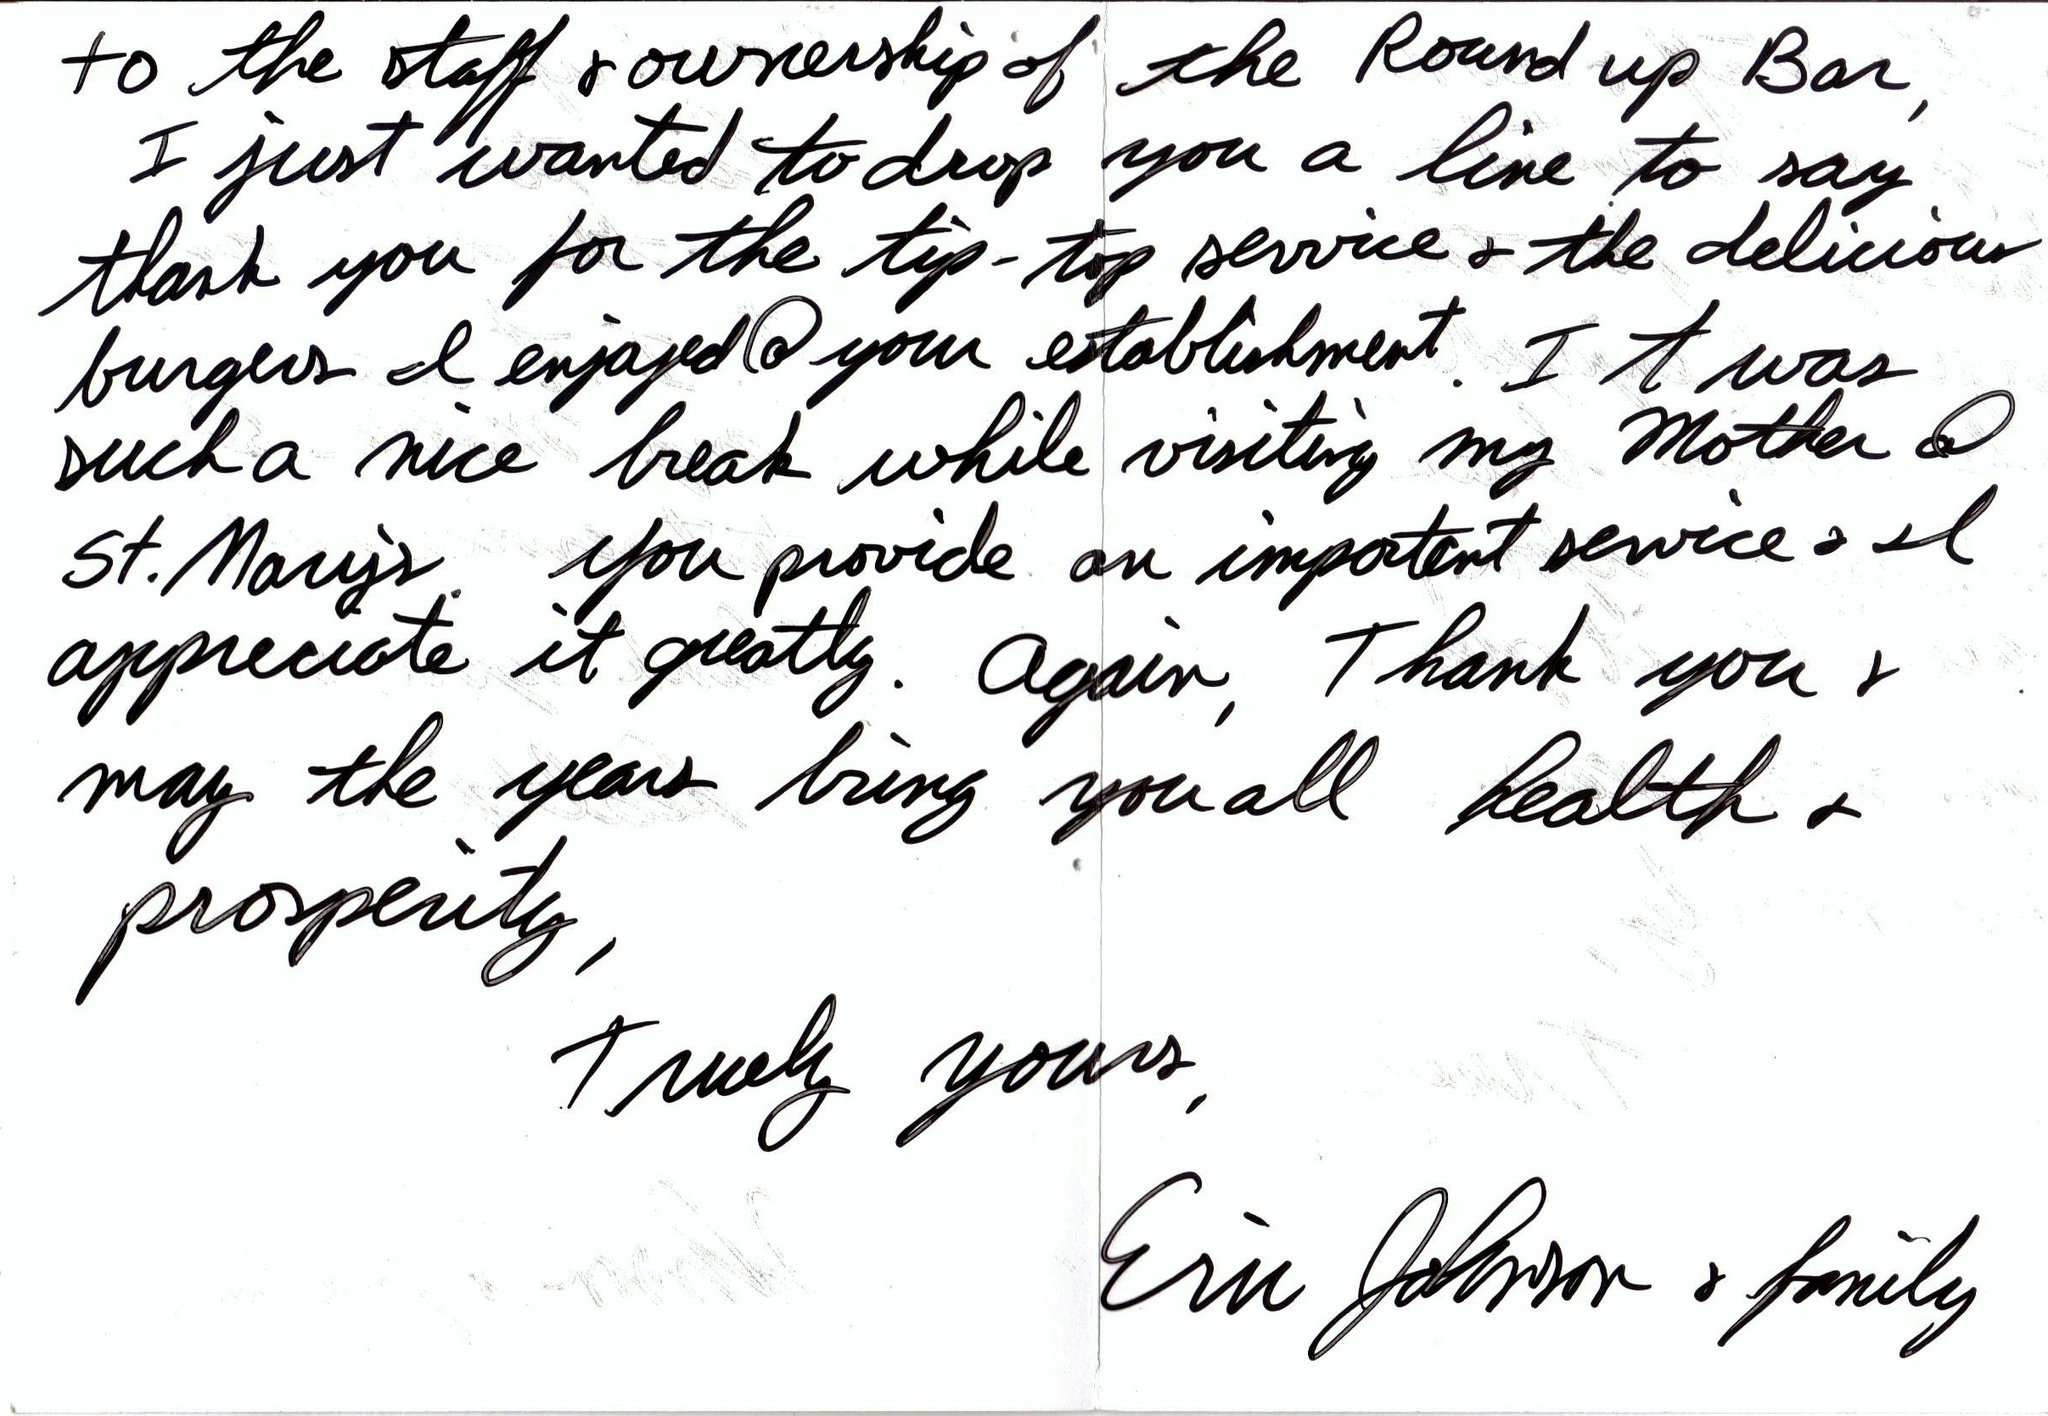 to the staff & ownership of the Round up Bar,
I just wanted to drop you a line to say
thank you for the tip-top service & the delicious
burgers I enjoyed @ your establishment. It was
such a nice break while visiting my Mother @
St. Mary's. You provide an important service & I
appreciate it greatly. Again, Thank you &
may the years bring you all health &
prosperity,
Truely yours,
Eric Johnson & family